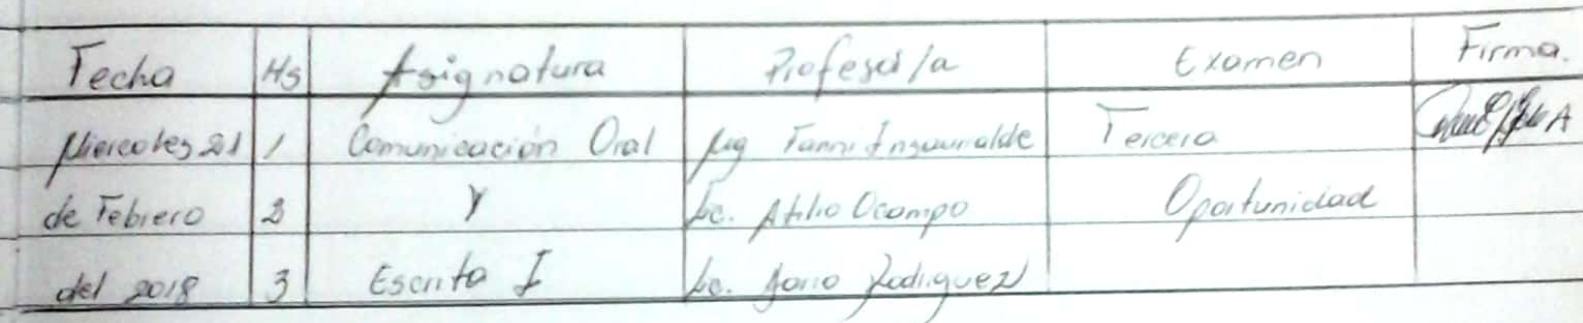 Fecha Hs Asignatura Profesor/a Examen Firma.
Miercoles 21 1 Comunicación Oral Mg Fanni Insaurralde Tercera
de Febrero 2 y Lc. Atilio Ocampo Oportunidad
del 2018 3 Escrita I Lc. Rodriguez